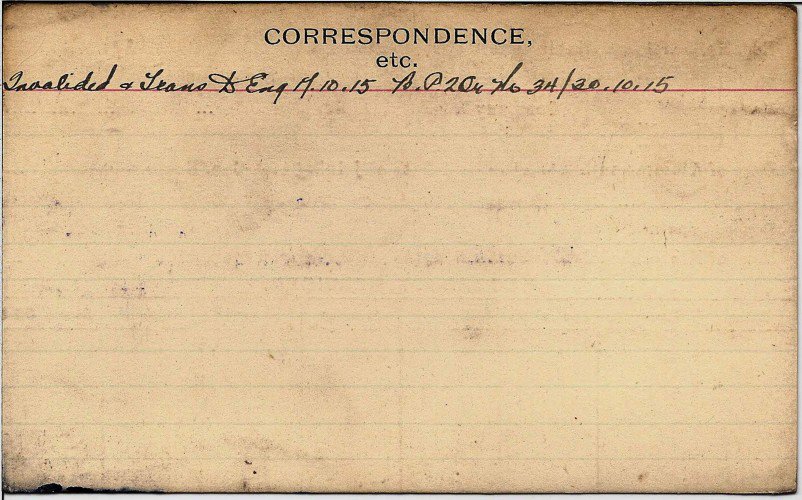 CORRESPONDENCE,
etc.
Invalided & Trans to Eng 17.10.15 No 34/20.10.15